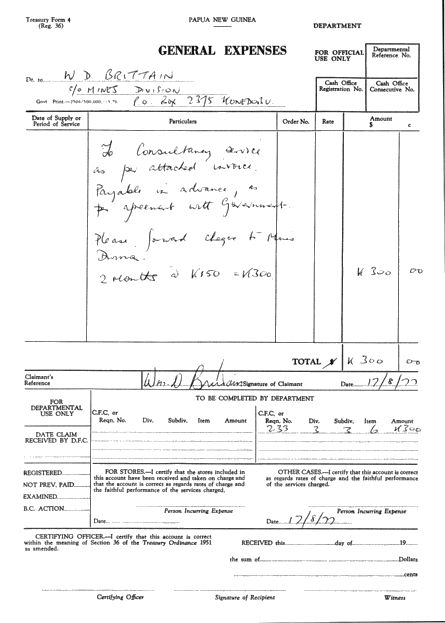 Treasury Form 4
(Reg. 36)
PAPUA NEW GUINEA
DEPARTMENT
GENERAL EXPENSES
FOR OFFICIAL USE ONLY
Departmental Reference No.
Cash Office Registration No.
Cash Office Consecutive No.
Dr. to W D. BRITTAIN
C/o MINES DIVISION
P.O. Box 2375 KONEDOBU
Govt. Print.
Date of Supply or Period of Service
Particulars
Order No.
Rate
Amount
$ c
To Consultancy service
as per attached invoice.
Payable in advance, as
per agreement with Government.
Please forward cheque to Mines
2 months @ K150 = K300
K 300 00
TOTAL K 300 00
Claimant's Reference
Signature of Claimant
Date 17/8/77
FOR DEPARTMENTAL USE ONLY
TO BE COMPLETED BY DEPARTMENT
C.F.C. or Reqn. No. Div. Subdiv. Item Amount
C.F.C. or Reqn. No. Div. Subdiv. Item Amount
233 3 3 6 K300
DATE CLAIM RECEIVED BY D.F.C.
REGISTERED
NOT PREV. PAID
EXAMINED
B.C. ACTION
FOR STORES.—I certify that the stores included in
this account have been received and taken on charge and
that the account is correct as regards rates of charge and
the faithful performance of the services charged.
Person Incurring Expense
Date
OTHER CASES.—I certify that this account is correct
as regards rates of charge and the faithful performance
of the services charged.
Person Incurring Expense
Date 17/8/77
CERTIFYING OFFICER.—I certify that this account is correct
within the meaning of Section 36 of the Treasury Ordinance 1951
as amended.
RECEIVED this day of 19
the sum of Dollars
cents
Certifying Officer
Signature of Recipient
Witness